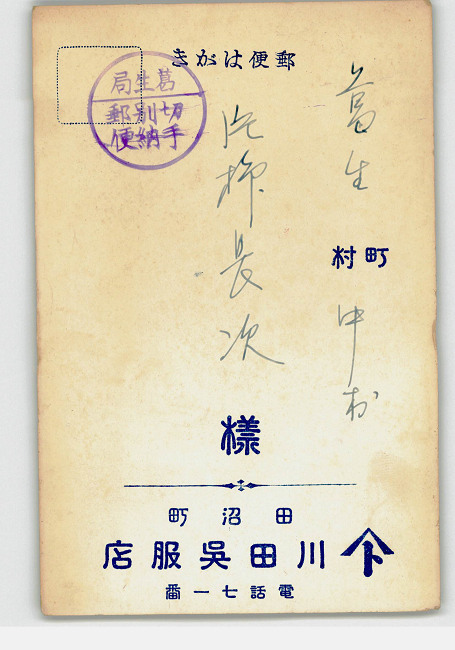 郵便はがき
葛生局
切手
別納
郵便
葛生
町村
片柳長次
様
田沼町
川田吳服店
電話七一番